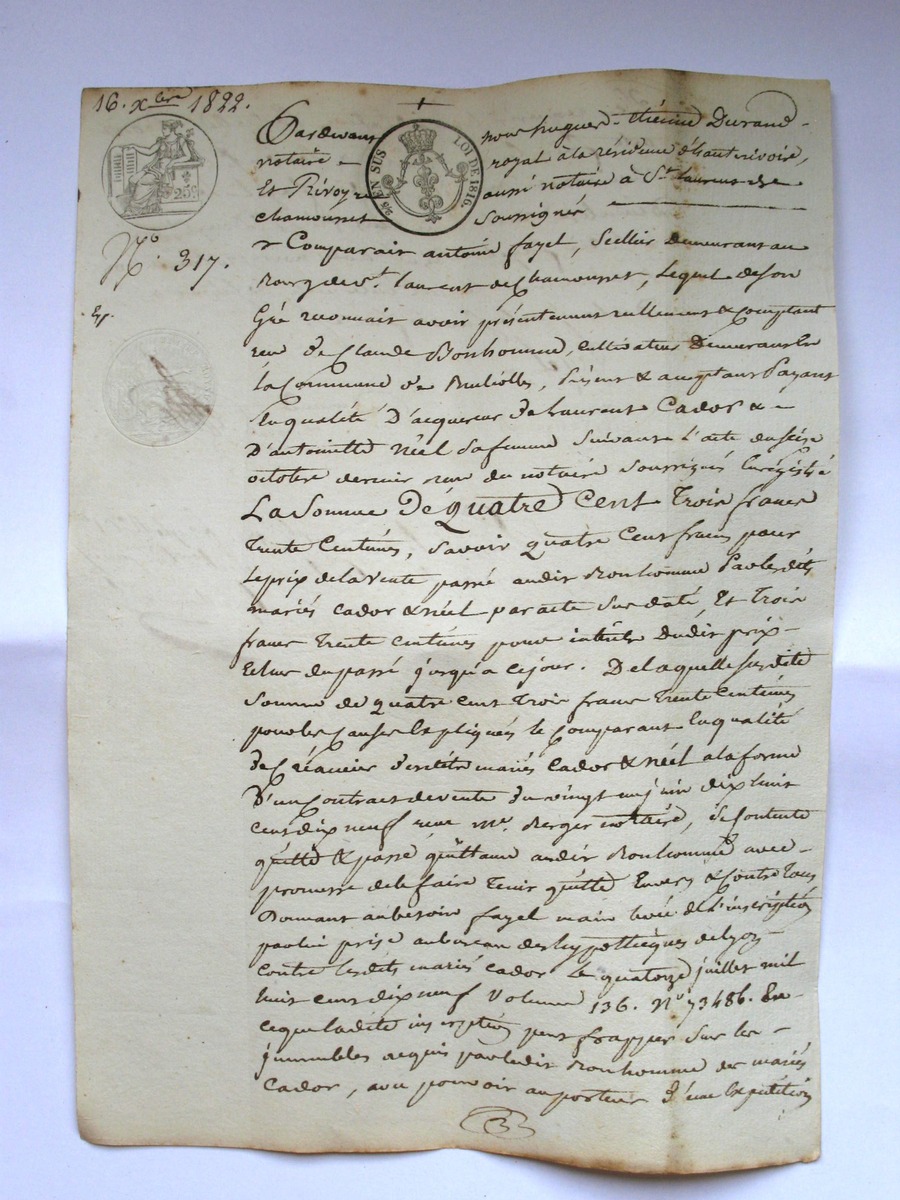 16. Xbre 1822.
25 EN SUS LOI DE 1816.
25c
Pardevant nous hugues étienne Durand
notaire royal à la résidence d'hauterivoire,
Et Prévoy aussi notaire à St. laurent de
chamousset soussignés
N° 317.
Comparait antoine fayel, sellier demeurant au
Bourg de st. laurent de chamousset, lequel de son
Gré reconnait avoir présentement réellement & comptant
reçu de Claude Bonhomme, cultivateur demeurant En
la Commune de Brulioles, présent & acceptant Payant
En qualité D'acquereur de laurent Cador & -
D'antoinette Néel sa femme suivant l'acte du seize
octobre dernier reçu du notaire soussigné Enrégistré
La Somme De quatre Cent Trois francs
Trente Centimes, savoir quatre Cent francs pour
le prix de la vente passé audit Bonhomme Par lesdits
mariés Cador & Néel par acte sus daté, Et Trois
francs Trente Centimes pour intérêts dudit prix
Echus du passé jusqu'a ce jour. De laquelle susdite
somme de quatre cent Trois francs Trente Centimes
pour les causes Expliquées le Comparant En qualité
de Créancier desdits mariés Cador & Néel a la forme
D'un Contract de vente du vingt un juin dix huit
Cent dix neuf reçu Me. Berger notaire, se contente
quitte & passe quittance audit Bonhomme avec
promesse de le faire Tenir quitte Envers & Contre Tous
Donnant au besoin fayel main levée de l'inscription
par lui prise au bureau des hypothèques de lyon
contre lesdits mariés Cador le quatorze juillet mil
huit cent dix neuf Volume 136. N° 73486. En
ce que ladite inscription peut frapper sur les -
immeubles acquis par ledit Bonhomme des mariés
Cador, avec pouvoir au porteur d'une Expédition